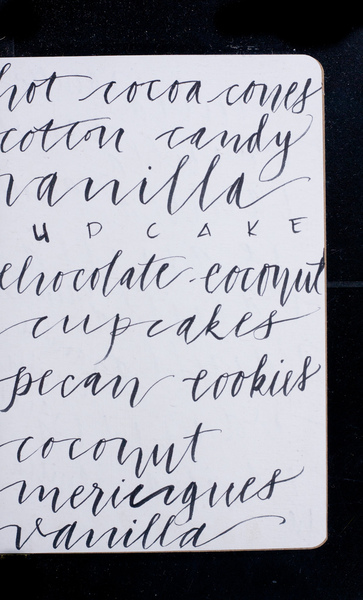 hot cocoa cones
cotton candy
vanilla
U D C A K E
chocolate coconut
cupcakes
pecan cookies
coconut
meriengues
vanilla